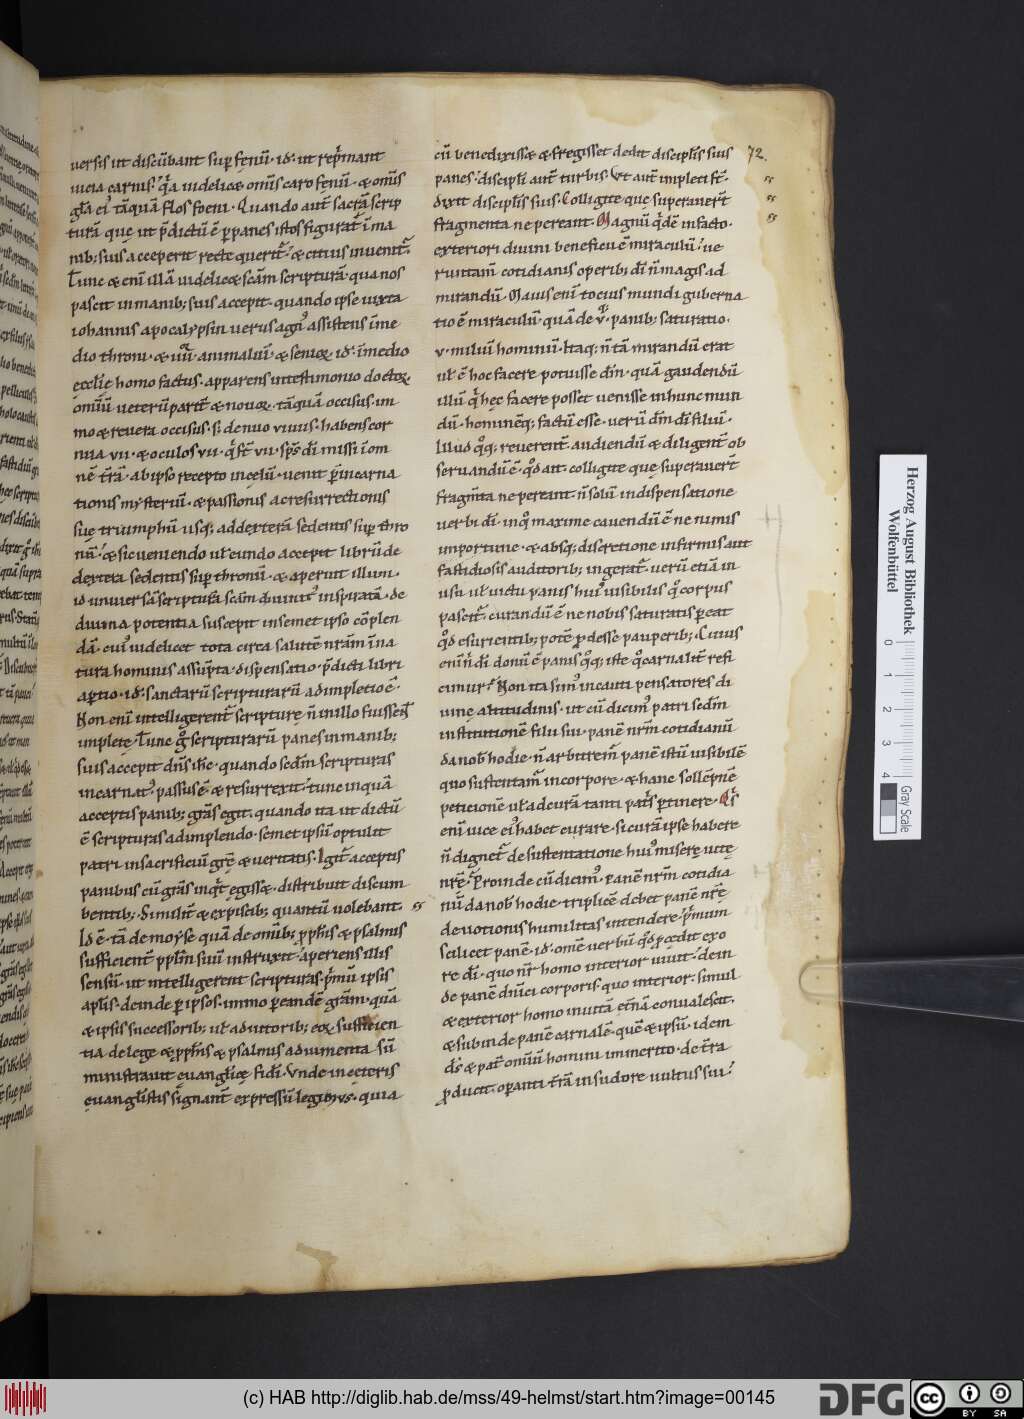 uersis ut discūbant sup fenū. id. ut rep̄mant
uicia carnis. q̄a uidelic& om̄is caro fenū. & om̄is
gl̄a ei' tāquā flos foeni. Quando aut̄ sacrā scrip
turā que ut p̄dictū ē p panes istos figurat̄ ī ma
nib; suis acceperit recte querit̄. & citius inuenit̄.
Tunc & eni illā uidelic& scām scripturā. qua nos
pascit in manib; suis accepit. quando ipse iuxta
iohannis apocalypsin uerus agn' assistens ī me
dio throni. & iiii animaliū. & senioꝝ. id. ī medio
ęccl̄ie homo factus. apparens in testimonio doctoꝝ
om̄iū ueterū parit̄ & nouoꝝ. tāquā occisus. im
mo & reuera occisus. s; denuo uiuus. habens cor
nua vii. & oculos vii. qͥ st̄ vii. sp̄s dī missi ī om
nē t̄rā. ab ipso recepto in celū. uenit p incarna
tionis mysteriū. & passionis ac resurrectionis
suę triumphū usq; ad dexterā sedentis sup thro
nū. & sic ueniendo uł eundo accepit librū de
dextera sedentis sup thronū. & aperuit illum.
id uniuersā scripturā scām diuinit' inspiratā. de
diuina potentia suscepit in semet ipso cōplen
dā. cui' uidelicet tota circa salutē nrām ī na
tura hominis assūpta. dispensatio. p̄dicti libri
aptio. id. sanctarū scripturarū adimpletio ē.
Non enī intelligerent̄ scripturę n̄ in illo fuissent
impletę. Tunc g scripturarū panes in manib;
suis accepit dn̄s ih̄c. quando sedm̄ scripturas
incarnat' passus ē. & resurrexit. tunc inquā
acceptis panib; grās egit. quando ita ut dictū
ē scripturas adimplendo. semet ipsū optulit
patri in sacrificiū grē & ueritatis. Igit̄ acceptis
panibus cū grās inqͥt egiss&. distribuit discum
bentib;. Similit̄ & ex piscib; quantū uolebant.
Id ē. tā de moyse quā de om̄ib; pph̄is & psalmis
sufficient̄ pplm̄ suū instruxit. aperiens illis
sensū. ut intelligerent scripturas. p̄mū ipsis
apłis. deinde p ipsos. immo p eandē grām. quā
& ipsis successorib; uł adiutorib; eoꝝ sufficien
tia de lege & pph̄is & psalmis adiumenta sū
ministrauit euangl̄icę fidi. Vnde in ceteris
euangl̄istis signant̄ expressū legimus. quia
cū benedixiss& & fregisset dedit discipl̄is suis 72.
panes. discipli aut̄ turbis. Vt aut̄ impleti st̄.
dixit discipl̄is suis. Colligite que superauert̄
fragmenta ne pereant. Magnū qͥdē in facto.
exteriori diuini beneficii ē miraculū. ue
runtam̄ cotidianis operib; dī n̄ magis ad
mirandū. Maius enī tocius mundi guberna
tio ē miraculū. quā de v. panib; saturatio.
v. miliū hominū. Itaq; n̄ tā mirandū erat
uł ē hoc facere potuisse dm̄. quā gaudendū
illū qͥ hęc facere posset uenisse in hunc mun
dū. hominēq; factū esse. uerū dm̄ dī filiū.
Illud qͦq; reuerent̄ audiendū & diligent̄ ob
seruandū ē. qͦd ait. colligite que superauert̄
fragm̄ta ne pereant. n̄ solū in dispensatione
uerbi dī. in qͦ maxime cauendū ē ne nimis
importune. & absq; discretione infirmis aut
fastidiosis auditorib; ingerat̄. uerū etiā in
usu uł uictu panis hui' uisibilis qͦ corpus
pascit̄. curandū ē ne nobis saturatis pereat
qͦd esurientib; potē pdesse pauperib;. Cuius
eni n̄ dī donū ē panis qͦq; iste qͦ carnalit̄ refi
cimur. Non ita sim' incauti pensatores di
uinę altitudinis. ut cū dicim' patri sedm̄
institutionē filii sui. panē nrm̄ cotidianū
da nob hodie. n̄ arbitrem̄ panē istū uisibilē
quo sustentam̄ in corpore. & hanc sollēpnē
peticionē uł ad curā tanti pat̄s p̄tinere. Q̄s
enī uice ei' habet curare. si curā ipse habere
n̄ dignet̄ de sustentatione hui' miserę uitę
nrē. Proinde cū dicim'. Panē nrm̄ cotidia
nū da nob hodie. triplicē debet panē nrē
deuotionis humilitas intendere. p̄mum
scilicet panē. id. omē uerbū qͦd pcedit exo
re dī. quo nr̄ homo interior uiuit. dein
de panē dn̄ici corporis quo interior. simul
& exterior homo in uitā et̄nā conualescit.
& subinde panē carnalē. quē & ipsū. idem
d̄s & pat̄ om̄iū homini immerito. de t̄ra
pducit. opanti t̄rā in sudore uultus sui.
Herzog August Bibliothek
Wolfenbüttel
0 1 2 3 4
Gray Scale
(c) HAB http://diglib.hab.de/mss/49-helmst/start.htm?image=00145
DFG
cc BY SA